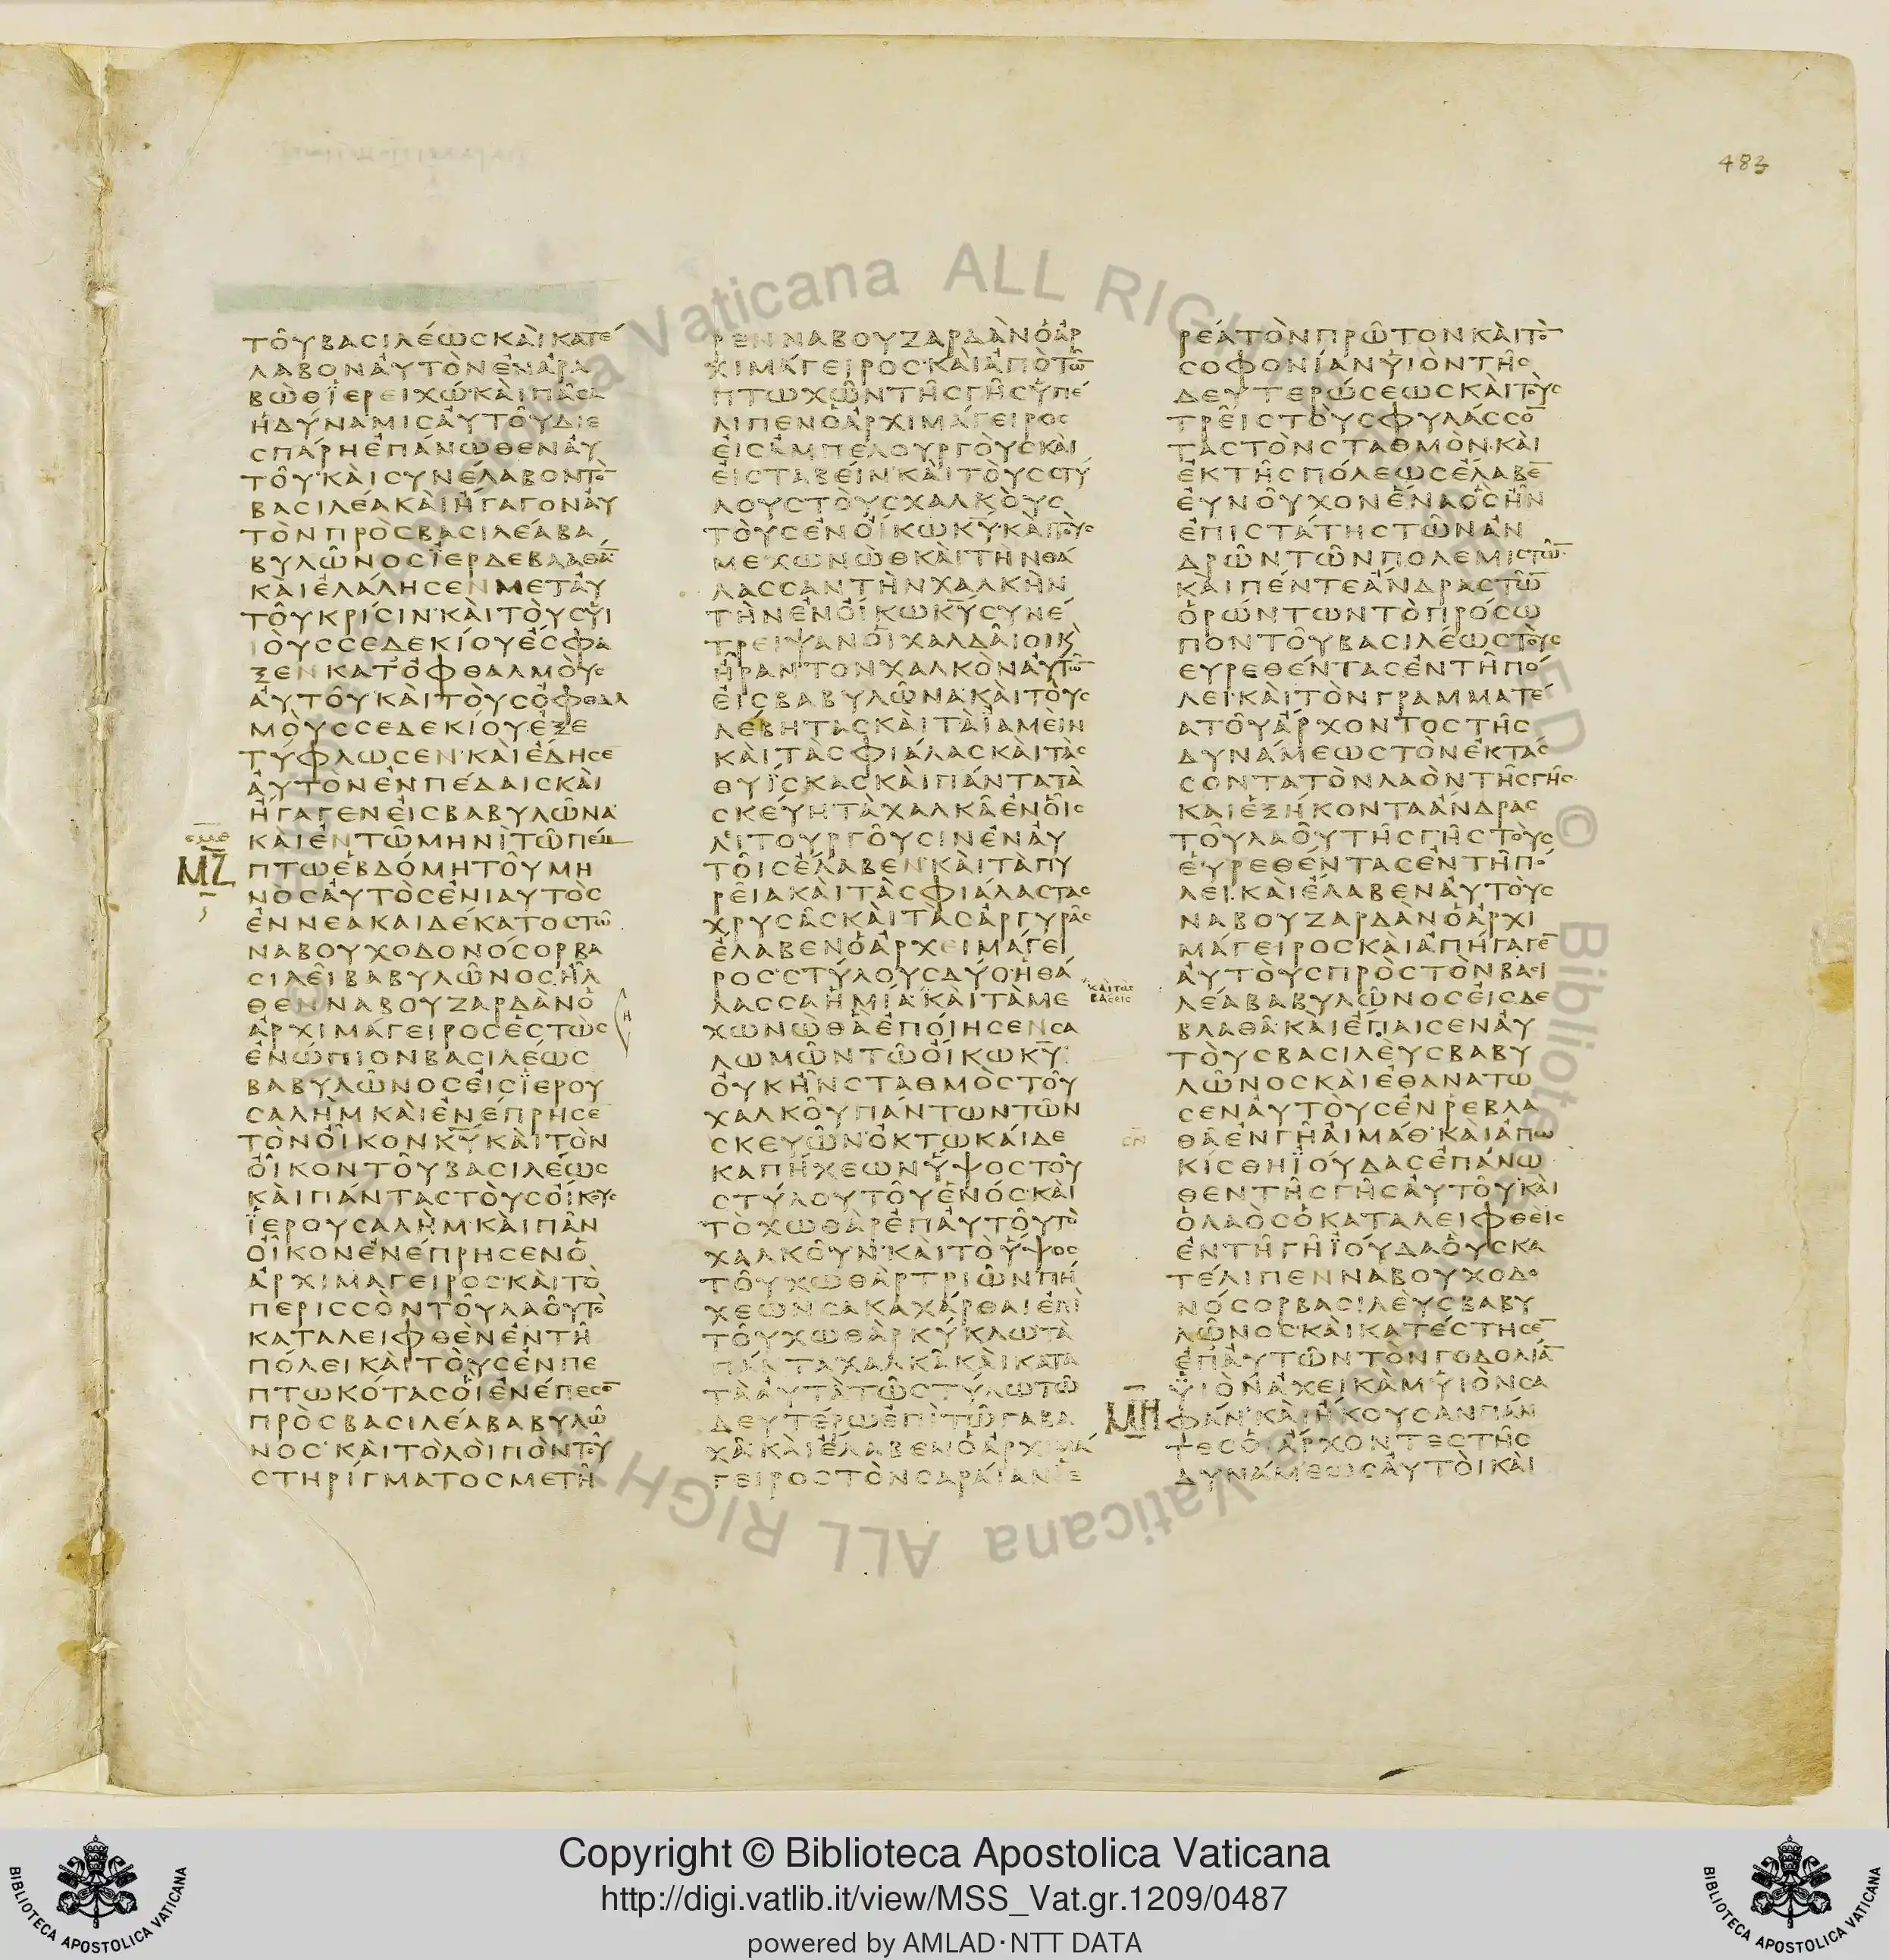 483
ΤΟΥΒΑΣΙΛΕΩΣΚΑΙΚΑΤΕ
ΛΑΒΟΝΑΥΤΟΝΕΝΑΡΑ
ΒΩΘΪΕΡΕΙΧΩ·ΚΑΙΠΑΣΑ
ΗΔΥΝΑΜΙΣΑΥΤΟΥΔΙΕ
ΣΠΑΡΗΕΠΑΝΩΘΕΝΑΥ
ΤΟΥ·ΚΑΙΣΥΝΕΛΑΒΟΝΤΟ̅
ΒΑΣΙΛΕΑΚΑΙΗΓΑΓΟΝΑΥ
ΤΟΝΠΡΟΣΒΑΣΙΛΕΑΒΑ
ΒΥΛΩΝΟΣΪΕΡΔΕΒΛΑΘΑ̅
ΚΑΙΕΛΑΛΗΣΕΝΜΕΤΑΥ
ΤΟΥΚΡΙΣΙΝ·ΚΑΙΤΟΥΣΥΙ
ΙΟΥΣΣΕΔΕΚΙΟΥΕΣΦΑ
ΞΕΝΚΑΤΟΦΘΑΛΜΟΥΣ
ΑΥΤΟΥ·ΚΑΙΤΟΥΣΟΦΘΑΛ
ΜΟΥΣΣΕΔΕΚΙΟΥΕΞΕ
ΤΥΦΛΩΣΕΝ·ΚΑΙΕΔΗΣΕ
ΑΥΤΟΝΕΝΠΕΔΑΙΣΚΑΙ
ΗΓΑΓΕΝΕΙΣΒΑΒΥΛΩΝΑ·
ΚΑΙΕΝΤΩΜΗΝΙΤΩΠΕΜ
ΜΖ
ΠΤΩΕΒΔΟΜΗΤΟΥΜΗ
ΝΟΣΑΥΤΟΣΕΝΙΑΥΤΟΣ
ΕΝΝΕΑΚΑΙΔΕΚΑΤΟΣΤΩ
ΝΑΒΟΥΧΟΔΟΝΟΣΟΡΒΑ
ΣΙΛΕΙΒΑΒΥΛΩΝΟΣΗΛ
ΘΕΝΝΑΒΟΥΖΑΡΔΑΝΟ
ΑΡΧΙΜΑΓΕΙΡΟΣΕΣΤΩΣ
ΕΝΩΠΙΟΝΒΑΣΙΛΕΩΣ
ΒΑΒΥΛΩΝΟΣΕΙΣΪΕΡΟΥ
ΣΑΛΗΜΚΑΙΕΝΕΠΡΗΣΕ
ΤΟΝΟΙΚΟΝΚ̅Υ̅ΚΑΙΤΟΝ
ΟΙΚΟΝΤΟΥΒΑΣΙΛΕΩΣ
ΚΑΙΠΑΝΤΑΣΤΟΥΣΟΙΚΟΥΣ
ΪΕΡΟΥΣΑΛΗΜ·ΚΑΙΠΑΝ
ΟΙΚΟΝΕΝΕΠΡΗΣΕΝΟ
ΑΡΧΙΜΑΓΕΙΡΟΣ·ΚΑΙΤΟ
ΠΕΡΙΣΣΟΝΤΟΥΛΑΟΥΤΟ
ΚΑΤΑΛΕΙΦΘΕΝΕΝΤΗ
ΠΟΛΕΙΚΑΙΤΟΥΣΕΝΠΕ
ΠΤΩΚΟΤΑΣΟΙΕΝΕΠΕΣΟ̅
ΠΡΟΣΒΑΣΙΛΕΑΒΑΒΥΛΩ
ΝΟΣ·ΚΑΙΤΟΛΟΙΠΟΝΤΟΥ
ΣΤΗΡΙΓΜΑΤΟΣΜΕΤΗ
ΡΕΝΝΑΒΟΥΖΑΡΔΑΝΟΑΡ
ΧΙΜΑΓΕΙΡΟΣ·ΚΑΙΑΠΟΤΩ̅
ΠΤΩΧΩΝΤΗΣΓΗΣΥΠΕ
ΛΙΠΕΝΟΑΡΧΙΜΑΓΕΙΡΟΣ
ΕΙΣΑΜΠΕΛΟΥΡΓΟΥΣΚΑΙ
ΕΙΣΤΑΒΕΙΝ·ΚΑΙΤΟΥΣΣΤΥ
ΛΟΥΣΤΟΥΣΧΑΛΚΟΥΣ
ΤΟΥΣΕΝΟΙΚΩΚ̅Υ̅·ΚΑΙΤΟΥΣ
ΜΕΧΩΝΩΘΚΑΙΤΗΝΘΑ
ΛΑΣΣΑΝΤΗΝΧΑΛΚΗΝ
ΤΗΝΕΝΟΙΚΩΚ̅Υ̅ΣΥΝΕ
ΤΡΕΙΨΑΝΟΙΧΑΛΔΑΙΟΙΚ
ΗΡΑΝΤΟΝΧΑΛΚΟΝΑΥΤΩ̅
ΕΙΣΒΑΒΥΛΩΝΑ·ΚΑΙΤΟΥΣ
ΛΕΒΗΤΑΣΚΑΙΤΑΪΑΜΕΙΝ
ΚΑΙΤΑΣΦΙΑΛΑΣΚΑΙΤΑΣ
ΘΥΪΣΚΑΣΚΑΙΠΑΝΤΑΤΑ
ΣΚΕΥΗΤΑΧΑΛΚΑΕΝΟΙΣ
ΛΙΤΟΥΡΓΟΥΣΙΝΕΝΑΥ
ΤΟΙΣΕΛΑΒΕΝ·ΚΑΙΤΑΠΥ
ΡΕΙΑΚΑΙΤΑΣΦΙΑΛΑΣΤΑΣ
ΧΡΥΣΑΣΚΑΙΤΑΣΑΡΓΥΡΑΣ
ΕΛΑΒΕΝΟΑΡΧΕΙΜΑΓΕΙ
ΡΟΣ·ΣΤΥΛΟΥΣΔΥΟ·ΗΘΑ
ΛΑΣΣΑΗΜΙΑ·ΚΑΙΤΑΜΕ
ΚΑΙΤΑΣ
ΒΑΣΕΙΣ
ΧΩΝΩΘΑΕΠΟΙΗΣΕΝΣΑ
ΛΩΜΩΝΤΩΟΙΚΩΚ̅Υ̅·
ΟΥΚΗΝΣΤΑΘΜΟΣΤΟΥ
ΧΑΛΚΟΥΠΑΝΤΩΝΤΩΝ
ΣΚΕΥΩΝ·ΟΚΤΩΚΑΙΔΕ
ΚΑΠΗΧΕΩΝΥΨΟΣΤΟΥ
ΣΤΥΛΟΥΤΟΥΕΝΟΣ·ΚΑΙ
ΤΟΧΩΘΑΡΕΠΑΥΤΟΥΤΟ
ΧΑΛΚΟΥΝ·ΚΑΙΤΟΥΨΟΣ
ΤΟΥΧΩΘΑΡΤΡΙΩΝΠΗ
ΧΕΩΝΣΑΚΑΧΑΡΘΑΙΕΠΙ
ΤΟΥΧΩΘΑΡΚΥΚΛΩΤΑ
ΠΑΝΤΑΧΑΛΚΑΚΑΙΚΑΤΑ
ΤΑΑΥΤΑΤΩΣΤΥΛΩΤΩ
ΔΕΥΤΕΡΩΕΠΙΤΩΓΑΒΑ
ΧΑ·ΚΑΙΕΛΑΒΕΝΟΑΡΧΙΜΑ
ΓΕΙΡΟΣΤΟΝΣΑΡΑΙΑΝΙΕ
ΡΕΑΤΟΝΠΡΩΤΟΝΚΑΙΤΟ̅
ΣΟΦΟΝΙΑΝΥΙΟΝΤΗΣ
ΔΕΥΤΕΡΩΣΕΩΣΚΑΙΤΟΥΣ
ΤΡΕΙΣΤΟΥΣΦΥΛΑΣΣΟ̅
ΤΑΣΤΟΝΣΤΑΘΜΟΝ·ΚΑΙ
ΕΚΤΗΣΠΟΛΕΩΣΕΛΑΒΕ̅
ΕΥΝΟΥΧΟΝΕΝΑΟΣΗΝ
ΕΠΙΣΤΑΤΗΣΤΩΝΑΝ
ΔΡΩΝΤΩΝΠΟΛΕΜΙΣΤΩ̅·
ΚΑΙΠΕΝΤΕΑΝΔΡΑΣΤΩ̅
ΟΡΩΝΤΩΝΤΟΠΡΟΣΩ
ΠΟΝΤΟΥΒΑΣΙΛΕΩΣΤΟΥΣ
ΕΥΡΕΘΕΝΤΑΣΕΝΤΗΠΟ
ΛΕΙ·ΚΑΙΤΟΝΓΡΑΜΜΑΤΕ
ΑΤΟΥΑΡΧΟΝΤΟΣΤΗΣ
ΔΥΝΑΜΕΩΣΤΟΝΕΚΤΑΣ
ΣΟΝΤΑΤΟΝΛΑΟΝΤΗΣΓΗΣ·
ΚΑΙΕΞΗΚΟΝΤΑΑΝΔΡΑΣ
ΤΟΥΛΑΟΥΤΗΣΓΗΣΤΟΥΣ
ΕΥΡΕΘΕΝΤΑΣΕΝΤΗΠΟ
ΛΕΙ·ΚΑΙΕΛΑΒΕΝΑΥΤΟΥΣ
ΝΑΒΟΥΖΑΡΔΑΝΟΑΡΧΙ
ΜΑΓΕΙΡΟΣΚΑΙΑΠΗΓΑΓΕ̅
ΑΥΤΟΥΣΠΡΟΣΤΟΝΒΑΣΙ
ΛΕΑΒΑΒΥΛΩΝΟΣΕΙΣΔΕ
ΒΛΑΘΑ·ΚΑΙΕΠΑΙΣΕΝΑΥ
ΤΟΥΣΒΑΣΙΛΕΥΣΒΑΒΥ
ΛΩΝΟΣΚΑΙΕΘΑΝΑΤΩ
ΣΕΝΑΥΤΟΥΣΕΝΡΕΒΛΑ
ΘΑΕΝΓΗΑΙΜΑΘ·ΚΑΙΑΠΩ
ΚΙΣΘΗΪΟΥΔΑΣΕΠΑΝΩ
ΘΕΝΤΗΣΓΗΣΑΥΤΟΥ·ΚΑΙ
ΟΛΑΟΣΟΚΑΤΑΛΕΙΦΘΕΙΣ
ΕΝΤΗΓΗΪΟΥΔΑΟΥΣΚΑ
ΤΕΛΙΠΕΝΝΑΒΟΥΧΟΔΟ
ΝΟΣΟΡΒΑΣΙΛΕΥΣΒΑΒΥ
ΛΩΝΟΣ·ΚΑΙΚΑΤΕΣΤΗΣΕ̅
ΕΠΑΥΤΩΝΤΟΝΓΟΔΟΛΙΑ̅
ΥΙΟΝΑΧΕΙΚΑΜΥΙΟΝΣΑ
ΜΗ
ΦΑΝ·ΚΑΙΗΚΟΥΣΑΝΠΑΝ
ΤΕΣΟΙΑΡΧΟΝΤΕΣΤΗΣ
ΔΥΝΑΜΕΩΣΑΥΤΟΙΚΑΙ
Copyright © Biblioteca Apostolica Vaticana
http://digi.vatlib.it/view/MSS_Vat.gr.1209/0487
powered by AMLAD·NTT DATA
BIBLIOTECA APOSTOLICA VATICANA
BIBLIOTECA APOSTOLICA VATICANA